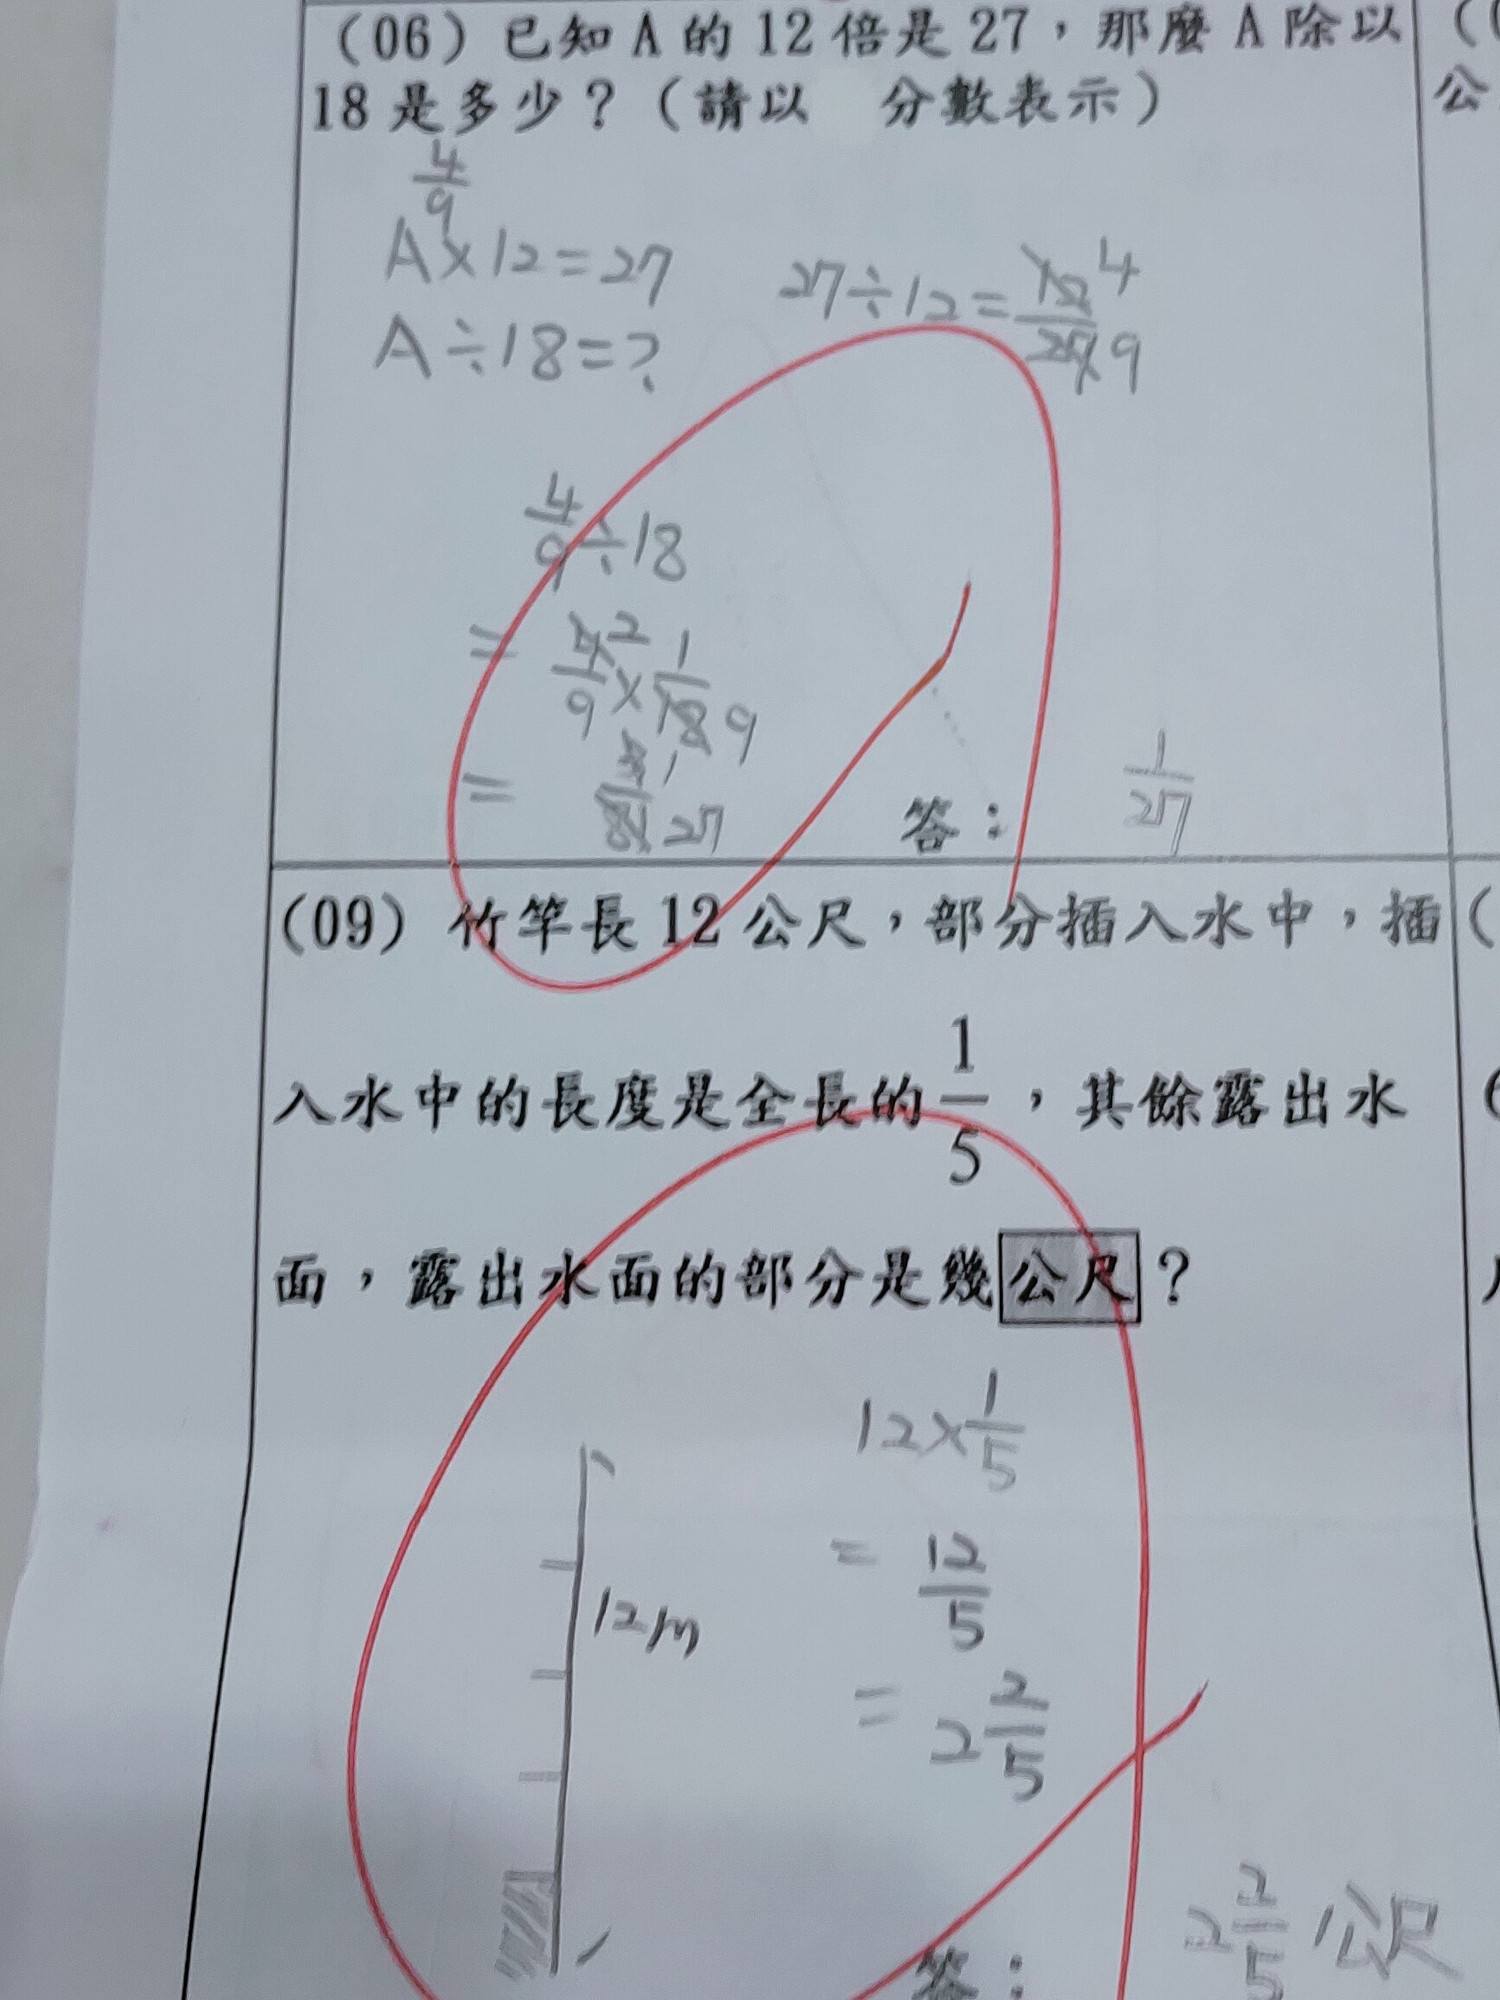 (06) 已知 A 的 12 倍是 27，那麼 A 除以
18 是多少？(請以 分數表示)
4/9
A×12=27
27÷12=12/27 4/9
A÷18=?
4/9÷18
= 4/9 2 × 1/18 9
= 1/27
答： 1/27
(09) 竹竿長 12 公尺，部分插入水中，插
入水中的長度是全長的 1/5，其餘露出水
面，露出水面的部分是幾公尺？
12×1/5
= 12/5
12m
= 2 2/5
答： 2 2/5 公尺
公